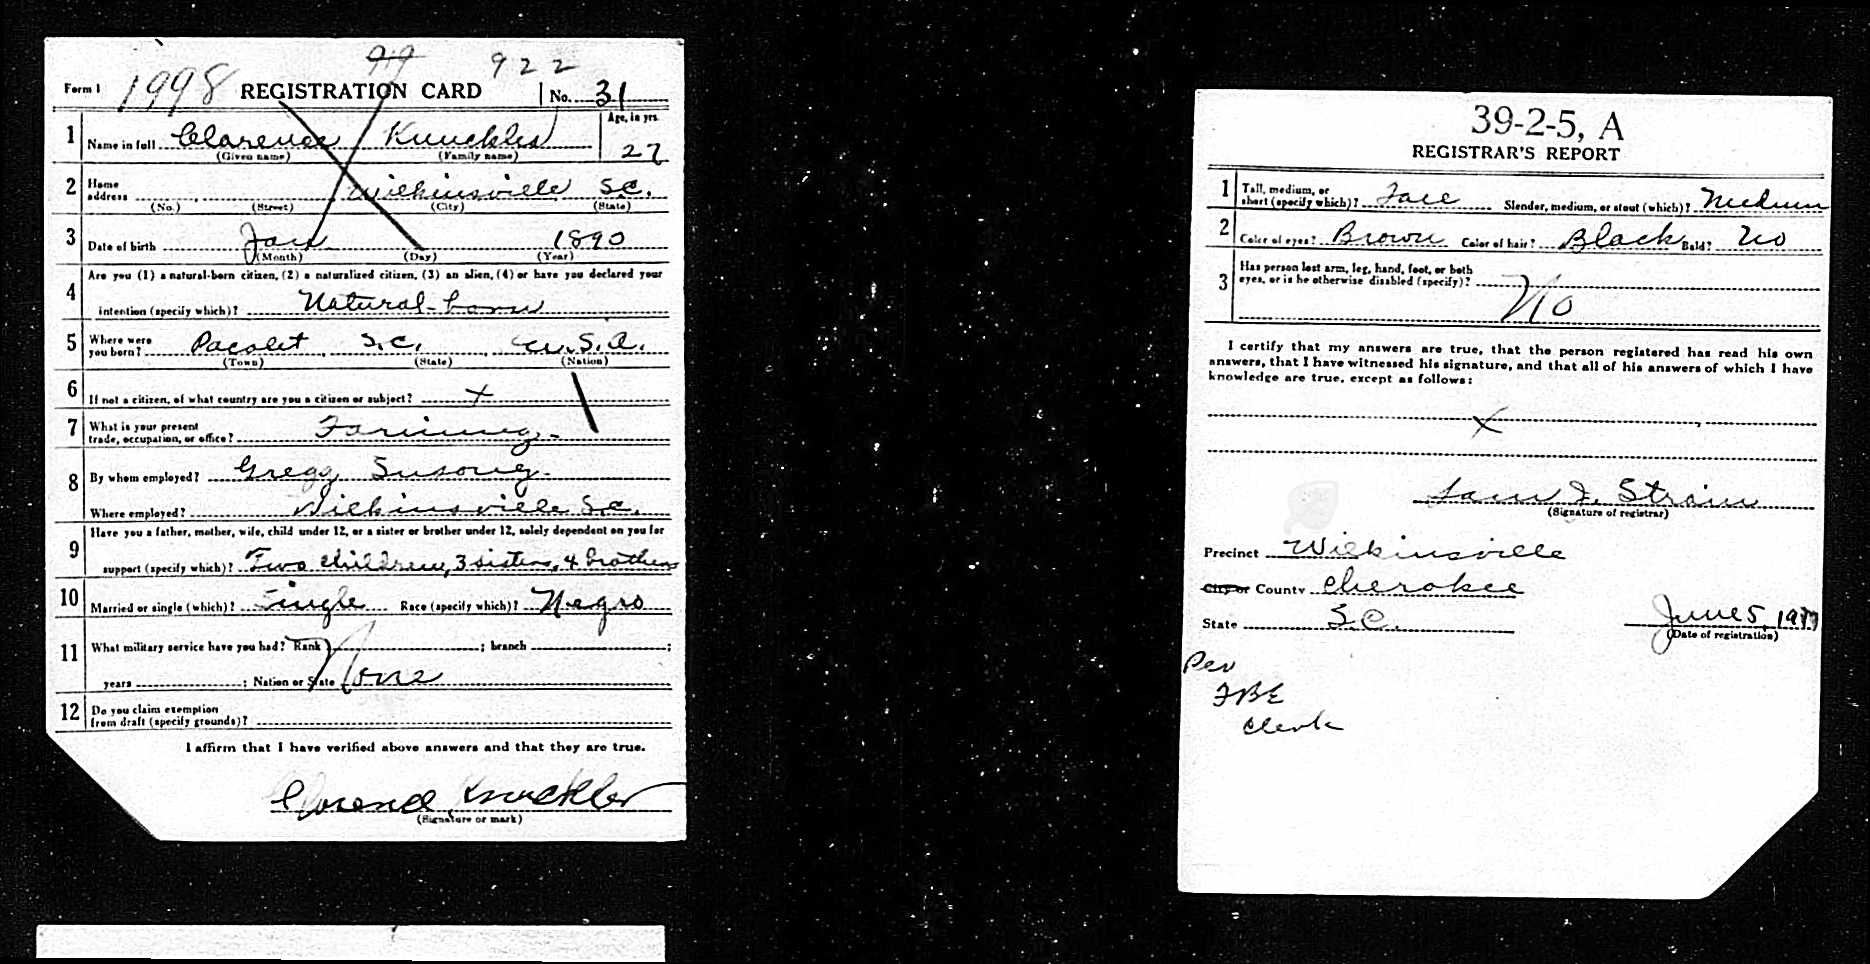 99 922
Form 1 1998 REGISTRATION CARD No. 31
1 Name in full Clarence Knuckles Age, in yrs. 27
(Given name) (Family name)
2 Home address Wilkinsville S.C.
(No.) (Street) (City) (State)
3 Date of birth Jan 1890
(Month) (Day) (Year)
4 Are you (1) a natural-born citizen, (2) a naturalized citizen, (3) an alien, (4) or have you declared your
intention (specify which)? Natural-born
5 Where were you born? Pacolet S.C. U.S.A.
(Town) (State) (Nation)
6 If not a citizen, of what country are you a citizen or subject? x
7 What is your present trade, occupation, or office? Farming
8 By whom employed? Gregg
Where employed? Wilkinsville S.C.
9 Have you a father, mother, wife, child under 12, or a sister or brother under 12, solely dependent on you for
support (specify which)? Two children, 3 sisters, 4 brothers
10 Married or single (which)? Single Race (specify which)? Negro
11 What military service have you had? Rank ; branch ;
years ; Nation or State None
12 Do you claim exemption from draft (specify grounds)?
I affirm that I have verified above answers and that they are true.
Clarence Knuckler
(Signature or mark)
39-2-5, A
REGISTRAR'S REPORT
1 Tall, medium, or short (specify which)? Tall Slender, medium, or stout (which)? Medium
2 Color of eyes? Brown Color of hair? Black Bald? No
3 Has person lost arm, leg, hand, foot, or both
eyes, or is he otherwise disabled (specify)?
No
I certify that my answers are true, that the person registered has read his own
answers, that I have witnessed his signature, and that all of his answers of which I have
knowledge are true, except as follows:
x
Sam J. Strain
(Signature of registrar)
Precinct Wilkinsville
City or County Cherokee
State S.C. June 5, 1917
(Date of registration)
Per
FBE
Clerk